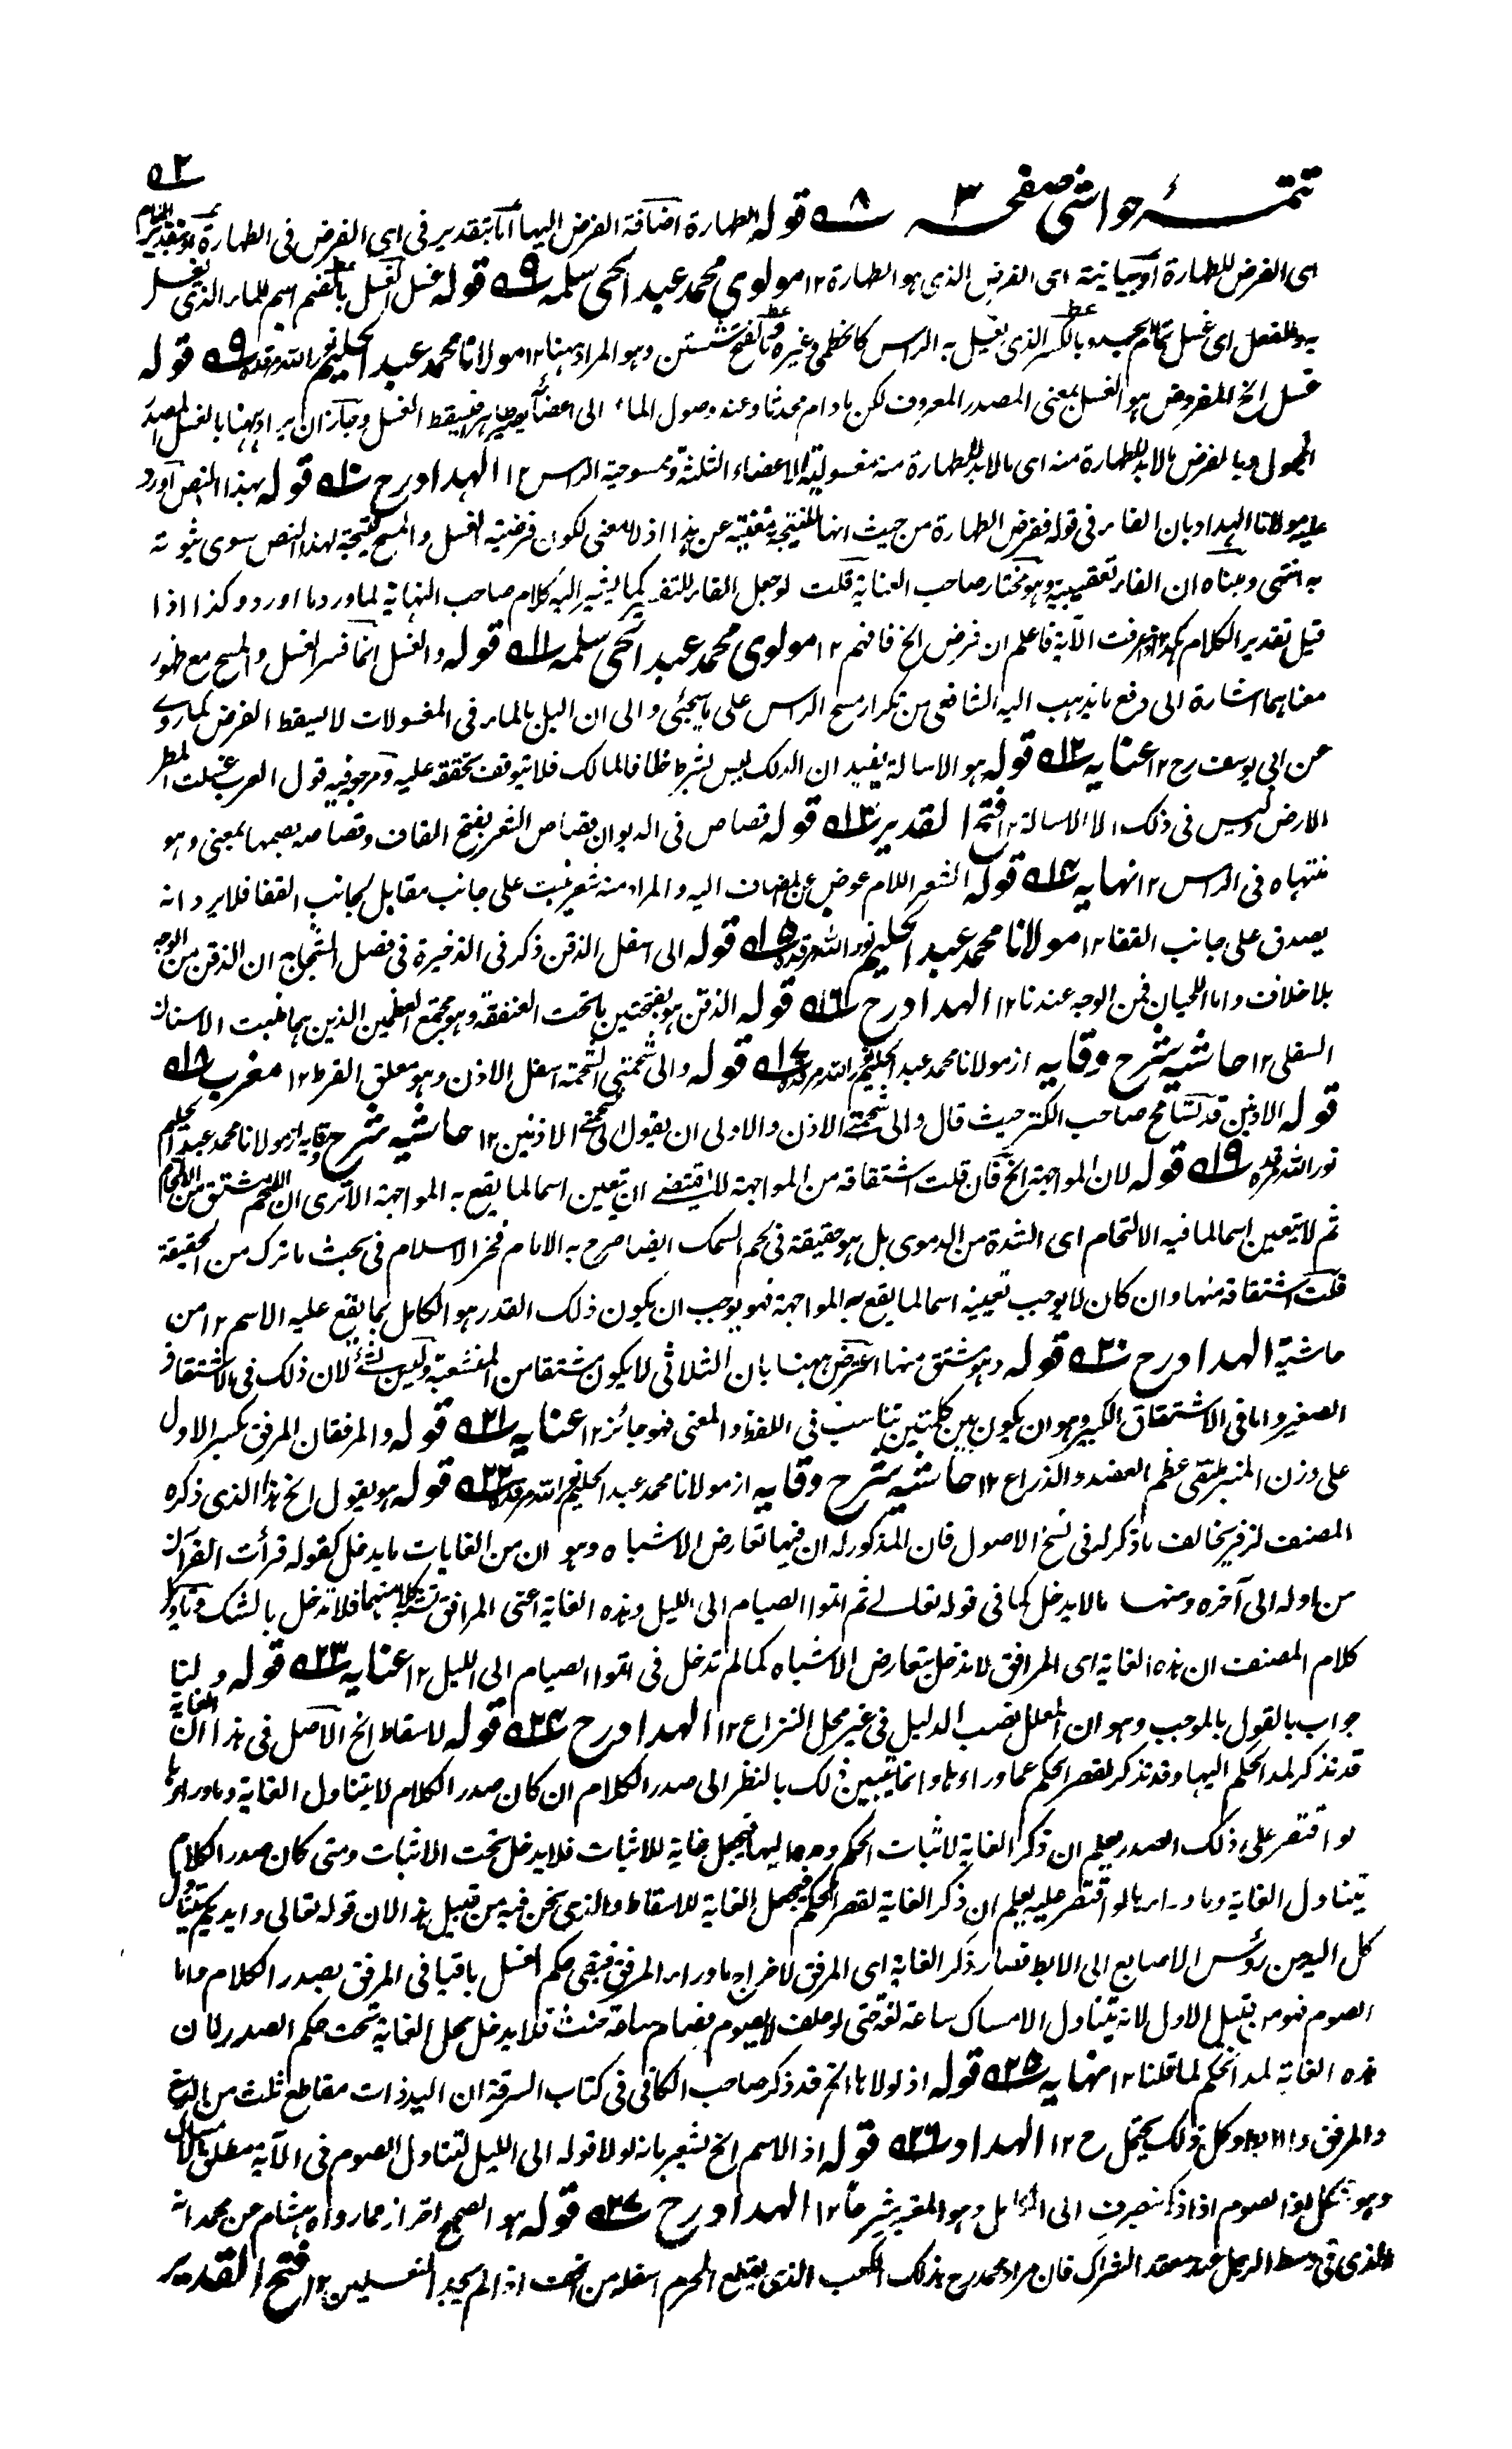 ٥٢
تتمۂ حواشی صفحہ ٣ ٨ قوله الطهارة اضافة الفرض اليها اما بتقدير فى اى الفرض فى الطهارة او بتقدير اللام
اى الفرض للطهارة او بيانية اى الفرض الذى هو الطهارة ١٢ مولوى محمد عبد الحى سلمه ٩ قوله غسل الغسل بالضم اسم للماء الذى يغسل
به وللفعل اى غسل تمام الجسد وبالكسر الذى يغسل به الراس كالخطمى وغيره وبالفتح شستن وهو المراد ههنا ١٢ مولانا محمد عبد الحليم نور الله مرقده ٩ قوله
غسل الخ المفروض هو الغسل بمعنى المصدر المعروف لكن ما دام محدثا وعند وصول الماء الى اعضائه يصير طاهرا فيسقط الغسل وجاز ان يراد ههنا بالغسل المصدر
المجهول وبالفرض ما لا بد للطهارة منه اى ما لا بد للطهارة منه مغسولية الاعضاء الثلثة وممسوحية الراس ١٢ الهداد رح ١٠ قوله بهذا النص اورد
عليه مولانا الهداد بان الفاء فى قوله ففرض الطهارة من حيث انها للنتيجة مغنية عن هذا اذ لا معنى لكون فرضية الغسل والمسح نتيجة لهذا النص سوى ثبوته
به انتهى ومبناه ان الفاء تعقيبية وهو مختار صاحب العناية قلت لو جعل الفاء للتفسير كما يشير اليه كلام صاحب النهاية لما ورد ما اورد وكذا اذا
قيل تقدير الكلام هكذا اذا عرفت الآية فاعلم ان فرض الخ فافهم ١٢ مولوى محمد عبد الحى سلمه ١١ قوله والغسل انما فسر الغسل والمسح مع ظهور
معناهما اشارة الى دفع ما يذهب اليه الشافعى من تكرار مسح الراس على ما يجئى والى ان البل بالماء فى المغسولات لا يسقط الفرض كما روى
عن ابى يوسف رح ١٢ عنايه ١٢ قوله هو الاسالة يفيد ان الدلك ليس بشرط خلافا لمالك فلا يتوقف تحققه عليه ومرجوفيه قول العرب غسلت المطر
الارض وليس فى ذلك الا الاسالة ١٢ فتح القدير ١٣ قوله قصاص فى الديوان قصاص الشعر بفتح القاف وقصاصه بضمها بمعنى وهو
منتهاه فى الراس ١٢ نهايه ١٤ قوله الشعر اللام عوض عن المضاف اليه والمراد منه شعر نبت على جانب مقابل لجانب القفا فلا يرد انه
يصدق على جانب القفا ١٢ مولانا محمد عبد الحليم نور الله مرقده ١٥ قوله الى اسفل الذقن ذكر فى الذخيرة فى فصل الشجاج ان الذقن من الوجه
بلا خلاف واما اللحيان فمن الوجه عندنا ١٢ الهداد رح ١٦ قوله الذقن هو بفتحتين ما تحت العنفقة وهو مجتمع العظمين الذين بهما منبت الاسنان
السفلى ١٢ حاشيه شرح وقايه از مولانا محمد عبد الحليم نور الله مرقده ١٧ قوله والى شحمتى الشحمة اسفل الاذن وهو معلق القرط ١٢ مغرب ١٨
قوله الاذنين قد تسامح صاحب الكنز حيث قال والى شحمتى الاذن والاولى ان يقول الى شحمتى الاذنين ١٢ حاشيه شرح وقايه از مولانا محمد عبد الحليم
نور الله مرقده ١٩ قوله لان المواجهة الخ فان قلت اشتقاقه من المواجهة لا يقتضى ان يتعين اسما لما يقع به المواجهة الا ترى ان اللحم مشتق من الالتحام
ثم لا يتعين اسما لما فيه الالتحام اى الشدة من الدموى بل هو حقيقة فى لحم السمك ايضا صرح به الامام فخر الاسلام فى بحث ما ترك من الحقيقة
قلت اشتقاقه منها وان كان لا يوجب تعيينه اسما لما يقع به المواجهة فهو يوجب ان يكون ذلك القدر هو الكامل مما يقع عليه الاسم ١٢ من
حاشية الهداد رح ٢٠ قوله وهو مشتق منها اعترض ههنا بان الثلاثى لا يكون مشتقا من المنشعبة وليس بشئ لان ذلك فى الاشتقاق
الصغير واما فى الاشتقاق الكبير وهو ان يكون بين كلمتين تناسب فى اللفظ والمعنى فهو جائز ١٢ عنايه ٢١ قوله والمرفقان المرفق بكسر الاول
على وزن المنبر ملتقى عظم العضد والذراع ١٢ حاشيه شرح وقايه از مولانا محمد عبد الحليم نور الله مرقده ٢٢ قوله هو يقول الخ هذا الذى ذكره
المصنف لزفر يخالف ما ذكر له فى نسخ الاصول فان المذكور له ان فيها تعارض الاشباه وهو ان من الغايات ما يدخل كقوله قرأت القرآن
من اوله الى آخره ومنها ما لا يدخل كما فى قوله تعالى ثم اتموا الصيام الى الليل وهذه الغاية اعنى المرافق تشبه كلا منهما فلا تدخل بالشك وتاويل
كلام المصنف ان هذه الغاية اى المرافق لا تدخل بتعارض الاشباه كما لم تدخل فى اتموا الصيام الى الليل ١٢ عنايه ٢٣ قوله ولنا
جواب بالقول بالموجب وهو ان المعلل نصب الدليل فى غير محل النزاع ١٢ الهداد رح ٢٤ قوله لاسقاط الخ الاصل فى هذا ان الغاية
قد تذكر لمد الحكم اليها وقد تذكر لقصر الحكم عما وراءها وانما يتبين ذلك بالنظر الى صدر الكلام ان كان صدر الكلام لا يتناول الغاية وما وراءها
لو اقتصر على ذلك الصدر يعلم ان ذكر الغاية لاثبات الحكم ومدها اليها فيجعل غاية للاثبات فلا يدخل تحت الاثبات ومتى كان صدر الكلام
يتناول الغاية وما وراءها لو اقتصر عليه يعلم ان ذكر الغاية لقصر الحكم فيجعل الغاية للاسقاط والذى نحن فيه من قبيل هذا لان قوله تعالى وايديكم يتناول
كل اليد من رؤس الاصابع الى الابط فصار ذكر الغاية اى المرفق لاخراج ما وراء المرفق فبقى حكم الغسل باقيا فى المرفق بصدر الكلام واما
الصوم فهو من قبيل الاول لانه يتناول الامساك ساعة لغة حتى لو حلف لا يصوم فصام ساعة حنث فلا يدخل محل الغاية تحت حكم الصدر لان
هذه الغاية لمد الحكم لما قلنا ١٢ نهايه ٢٥ قوله اذ لولاها الخ قد ذكر صاحب الكافى فى كتاب السرقة ان اليد ذات مقاطع ثلث من الرسغ
والمرفق والابط وكل ذلك يحتمل ١٢ الهداد رح ٢٦ قوله اذ الاسم الخ يشعر بانه لولا قوله الى الليل لتناول الصوم فى الآية مطلق الامساك
وهو مشكل فان الصوم اذا ذكر ينصرف الى الكامل وهو المعتبر شرعا ١٢ الهداد رح ٢٧ قوله هو الصحيح احتراز عما رواه هشام عن محمد انه
الذى فى وسط الرجل عند معقد الشراك فان مراد محمد رح بذلك الكعب الذى يقطع المحرم اسفله من الخف اذا لم يجد النعلين ١٢ فتح القدير